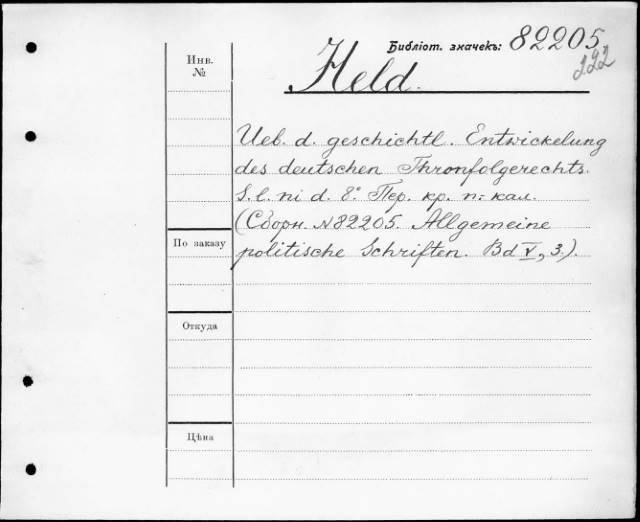 Библіот. значекъ: 82205
222
Инв. №
Held.
Ueb. d. geschichtl. Entwickelung
des deutschen Thronfolgerechts.
S. l. ni d. 8° Пер. кр. п. кал.
(Сборн. №82205. Allgemeine
По заказу
politische Schriften. Bd V, 3.).
Откуда
Цѣна